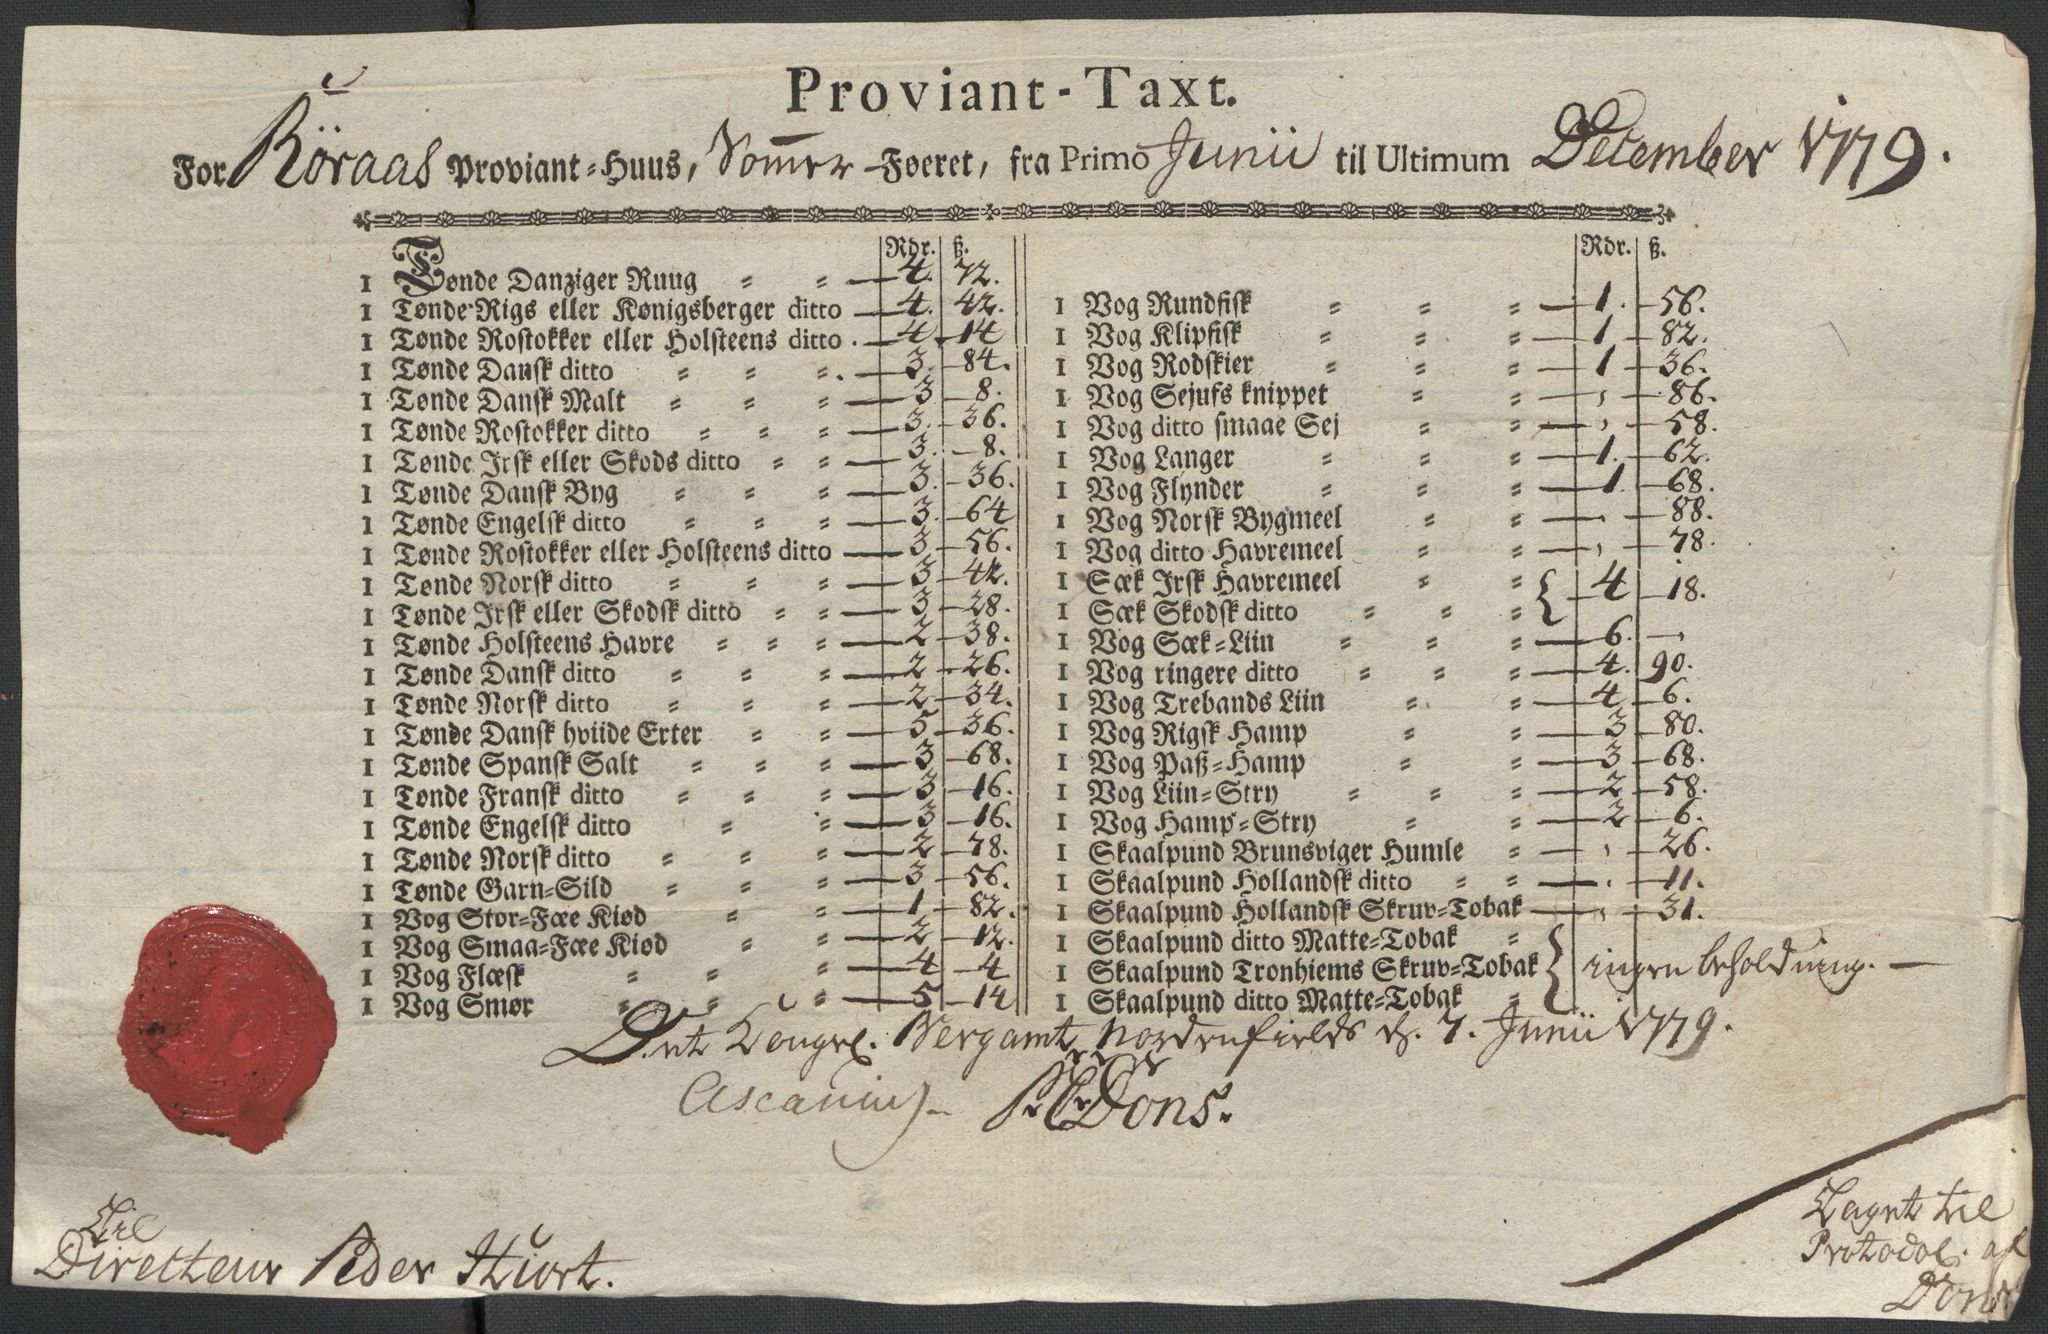 Proviant-Taxt.
For Röraas Proviant-Huus, Sommer-Foeret, fra Primo Junii til Ultimum December 1779.
Rdr. ß.
1 Tønde Danziger Ruug 4. 72.
1 Tønde Rigs eller Kønigsberger ditto 4. 42.
1 Tønde Rostokker eller Holsteens ditto 4. 14
1 Tønde Dansk ditto 3. 84.
1 Tønde Dansk Malt 3 8.
1 Tønde Rostokker ditto 3. 36.
1 Tønde Irsk eller Skods ditto 3. 8.
1 Tønde Dansk Byg 3. 36.
1 Tønde Engelsk ditto 3. 64
1 Tønde Rostokker eller Holsteens ditto 3 56.
1 Tønde Norsk ditto 3 42.
1 Tønde Irsk eller Skodsk ditto 3 28.
1 Tønde Holsteens Havre 2 38.
1 Tønde Dansk ditto 2 26.
1 Tønde Norsk ditto 2 34.
1 Tønde Dansk hviide Erter 5 36.
1 Tønde Spansk Salt 3 68.
1 Tønde Fransk ditto 3 16.
1 Tønde Engelsk ditto 3 16.
1 Tønde Norsk ditto 2 78.
1 Tønde Garn-Sild 3 56.
1 Vog Stor-Fæe Kiød 1 82.
1 Vog Smaa-Fæe Kiød 2 12.
1 Vog Flæsk 4 4
1 Vog Smør 5 14
Rdr. ß.
1 Vog Rundfisk 1. 56.
1 Vog Klipfisk 1 82.
1 Vog Rodskier 1 36.
1 Vog Sejufs knippet 86.
1 Vog ditto smaae Sej 58.
1 Vog Langer 1. 62.
1 Vog Flynder 1. 68.
1 Vog Norsk Bygmeel 88.
1 Vog ditto Havremeel 78.
1 Sæk Irsk Havremeel 4 18.
1 Sæk Skodsk ditto
1 Vog Sæk-Liin 6. —
1 Vog ringere ditto 4. 90.
1 Vog Trebands Liin 4 6.
1 Vog Rigsk Hamp 3 80.
1 Vog Paß-Hamp 3 68.
1 Vog Liin-Stry 2 58.
1 Vog Hamp-Stry 2 6.
1 Skaalpund Brunsviger Humle 26.
1 Skaalpund Hollandsk ditto 11.
1 Skaalpund Hollandsk Skruv-Tobak 31.
1 Skaalpund ditto Matte-Tobak
1 Skaalpund Tronhiems Skruv-Tobak ingen beholdning. —
1 Skaalpund ditto Matte-Tobak
Det Kongel. Bergamt Nordenfields d. 7. Junii 1779.
Ascanius Dons.
Til
Directeur Peder Hiort.
Lagnt til
Protocol. af
Dons